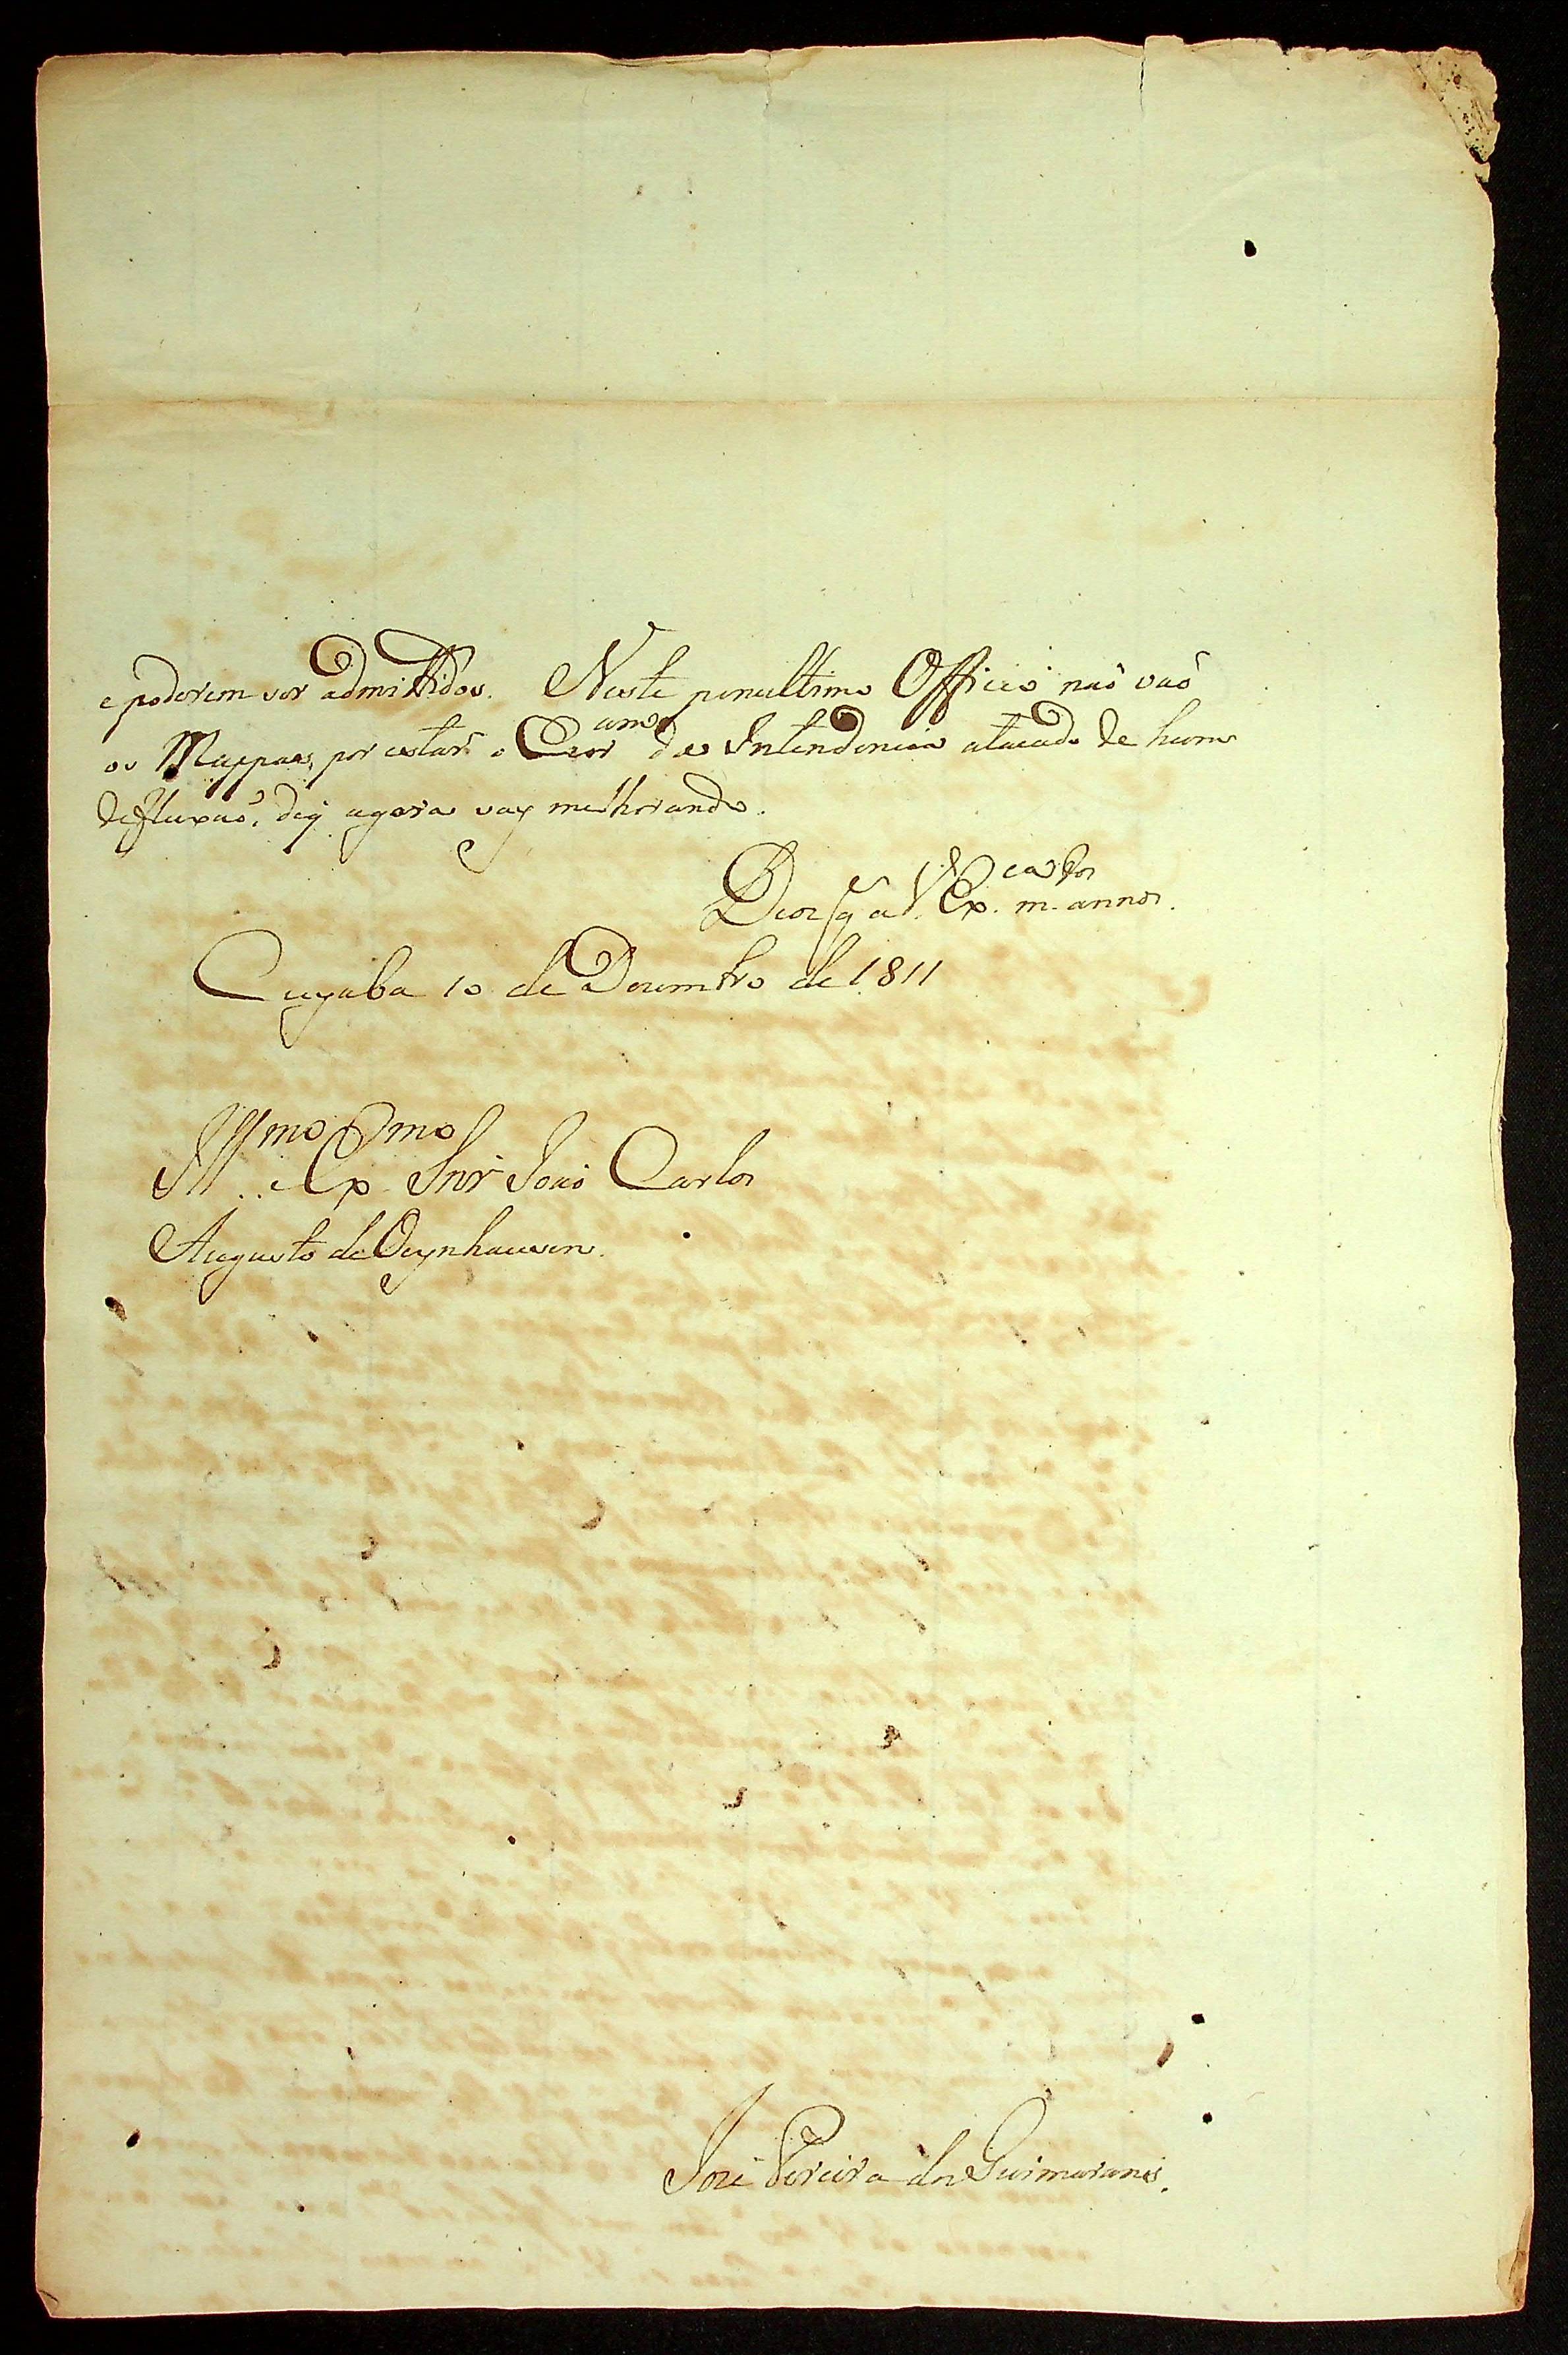 e poderem ser admittidos. Neste penultimo Officio naõ vaõ
os Mappas, por estar o Escr.am da Intendencia atacado de huma
defluxaõ, de q̃ agora vay melhorando.
Deos g.e a V. Ex.cia m.tos annos.
Cuyaba 10 de Dezembro de 1811
Ill.mo Ex.mo Snr Joaõ Carlos
Augusto de Oeynhausen.
Jozé Pereira dos Guimaraens.